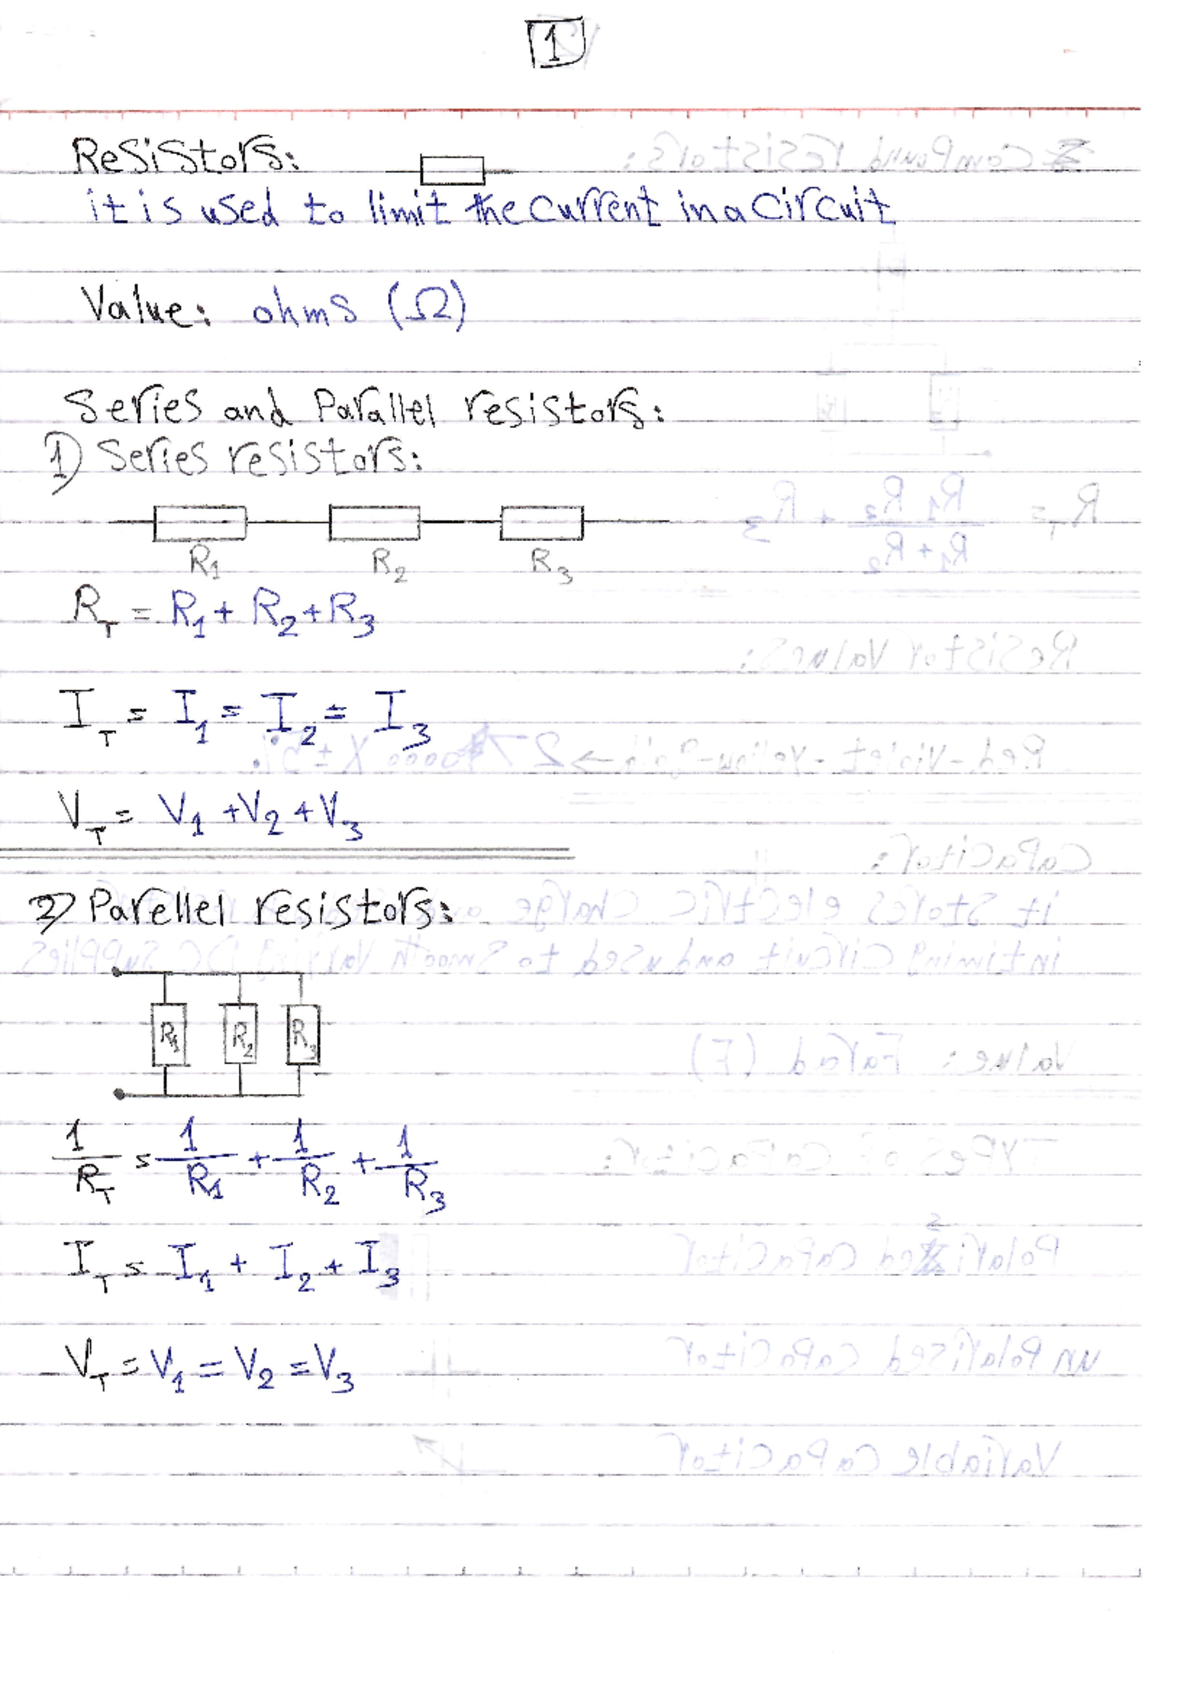 1
Resistors:
it is used to limit the current in a circuit
Value: ohms (Ω)
Series and Parallel resistors:
1) Series resistors:
R1 R2 R3
RT = R1 + R2 + R3
IT = I1 = I2 = I3
VT = V1 + V2 + V3
2) Parellel resistors:
R1 R2 R3
1/RT = 1/R1 + 1/R2 + 1/R3
IT = I1 + I2 + I3
VT = V1 = V2 = V3